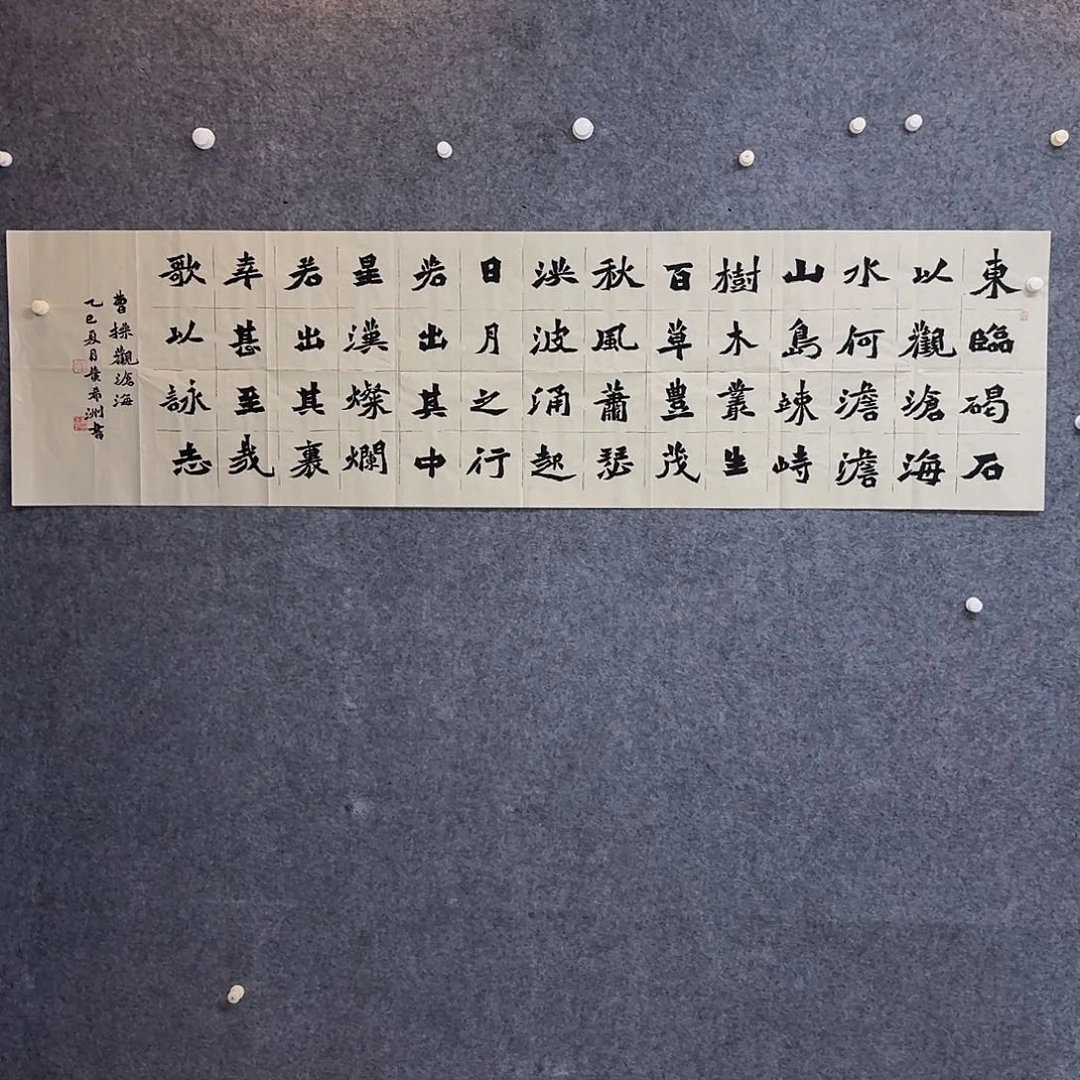 東臨碣石
以觀滄海
水何澹澹
山島竦峙
樹木叢生
百草豐茂
秋風蕭瑟
洪波涌起
日月之行
若出其中
星漢燦爛
若出其裏
幸甚至哉
歌以詠志
曹操觀滄海
乙巳夏月希洲書